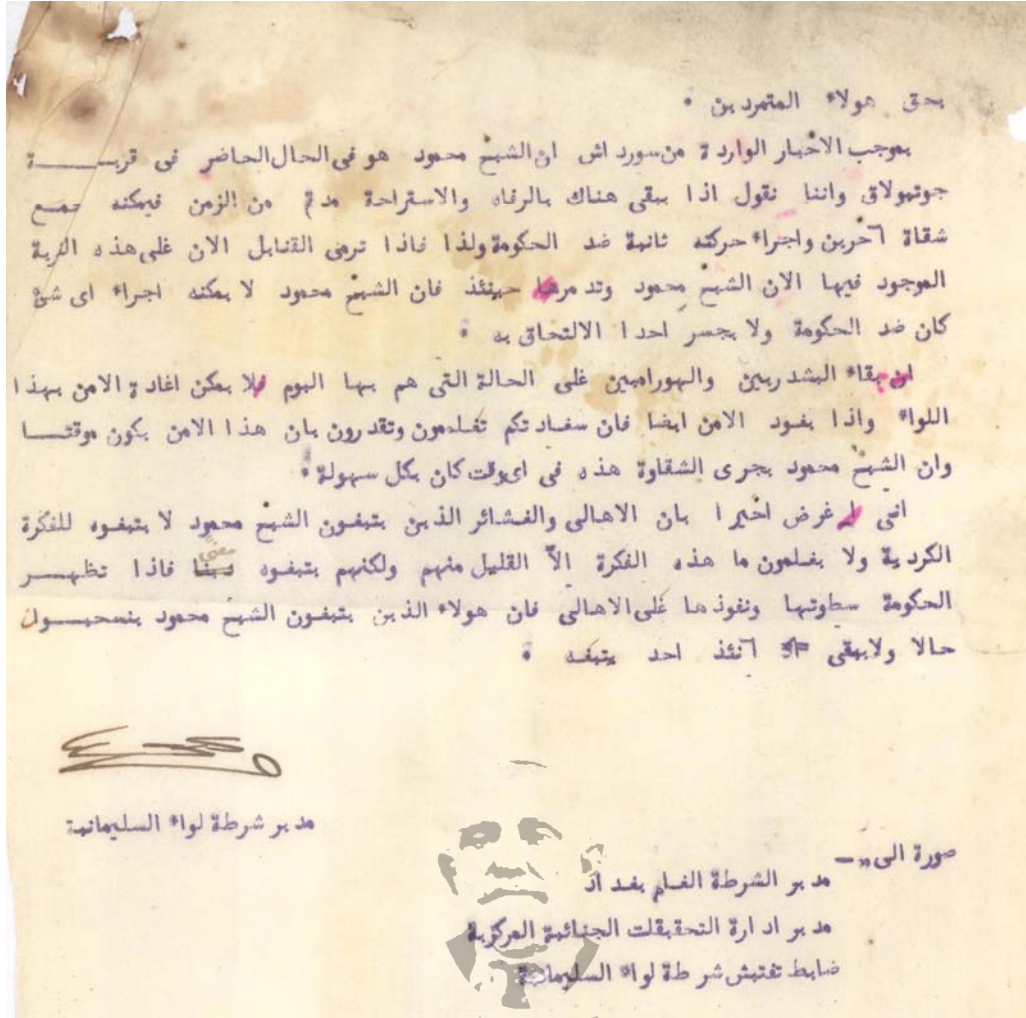 بحق هولاء المتمردين .
بموجب الاخبار الواردة من سورداش ان الشيخ محمود هو فى الحال الحاضر فى قريــــــة
جوتهولاقى واننا نقول اذا يبقى هناك بالرفاه والاستراحة مدة من الزمن فيمكنه جمـــع
شقاة آخرين واجراء حركته ثانية ضد الحكومة ولذا فاذا ترمى القنابل الان على هذه القرية
الموجود فيها الان الشيخ محمود وتدمرها حينئذ فان الشيخ محمود لا يمكنه اجراء اى شئ
كان ضد الحكومة ولا يجسر احدا الالتحاق به .
ان بقاء البشدريين والهوراميين على الحالة التى هم بها اليوم فلا يمكن اعادة الامن بهذا
اللواء واذا يعود الامن ايضا فان سعادتكم تعلمون وتقدرون بان هذا الامن يكون موقتــــا
وان الشيخ محمود يجرى الشقاوة هذه فى اى وقت كان بكل سهولة .
انى اعرض اخيرا بان الاهالى والعشائر الذين يتبعون الشيخ محمود لا يتبعوه للفكرة
الكردية ولا يعلمون ما هذه الفكرة الاّ القليل منهم ولكنهم يتبعوه فاذا تظهـــر
الحكومة سطوتها ونفوذها على الاهالى فان هولاء الذين يتبعون الشيخ محمود ينسحبــــون
حالا ولا يبقى آنئذ احد يتبعه .
مدير شرطة لواء السليمانية
صورة الى :-
مدير الشرطة العام بغداد
مدير ادارة التحقيقات الجنائية المركزية
ضابط تفتيش شرطة لواء السليمانية